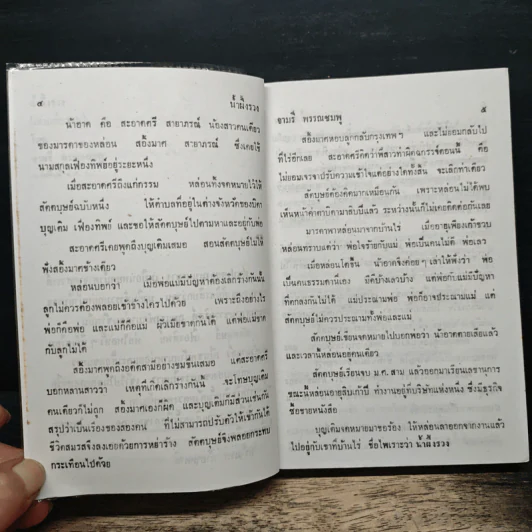 ๔
น้ำผึ้งรวง
น้าอาค คือ สะอาดศรี สายาภรณ์ น้องสาวคนเดียว
ของมารดาของหล่อน สอิ้งมาศ สายาภรณ์ ซึ่งเคยใช้
นามสกุลเฟื่องทิพย์อยู่ระยะหนึ่ง
เมื่อสะอาดศรีถึงแก่กรรม หล่อนทิ้งจดหมายไว้ให้
ลัดดบุษย์ฉบับหนึ่ง ให้ตำบลที่อยู่ในต่างจังหวัดของบิดา
บุญเติม เฟื่องทิพย์ และขอให้ลัดดบุษย์ไปตามหาและอยู่กับพ่อ
สะอาดศรีเคยพูดถึงบุญเติมเสมอ สอนลัดดบุษย์ไม่ให้
พึงสอิ้งมาศข้างเดียว
หล่อนบอกว่า เมื่อพ่อแม่มีปัญหาต้องเลิกร้างกันนั้น
ลูกไม่ควรต้องพลอยเข้าข้างใครไปด้วย เพราะถึงอย่างไร
พ่อก็คือพ่อ และแม่ก็คือแม่ ผัวเมียขาดกันได้ แต่พ่อแม่ขาด
กับลูกไม่ได้
สอิ้งมาศพูดถึงอดีตสามีอย่างขมขื่นเสมอ แต่สะอาดศรี
บอกหลานสาวว่า เหตุที่เกิดเลิกร้างกันนั้น จะโทษบุญเติม
คนเดียวก็ไม่ถูก สอิ้งมาศเองก็ผิด และบุญเติมก็มีส่วนเช่นกัน
สรุปว่าเป็นเรื่องของสองคน ที่ไม่สามารถปรับตัวให้เข้ากันได้
ชีวิตสมรสจึงลงเอยด้วยการหย่าร้าง ลัดดบุษย์จึงพลอยกระทบ
กระเทือนไปด้วย
อามรี พรรณชมพู
๕
สอิ้งมาศหอบลูกกลับกรุงเทพฯ และไม่ยอมกลับไป
ที่ไร่อีกเลย สะอาดศรีคิดว่าพี่สาวทำผิดฉกรรจ์ตอนนี้ คือ
ไม่ยอมเจรจาปรับความเข้าใจแต่อย่างใดทั้งสิ้น จะเลิกท่าเดียว
ลัดดบุษย์ต้องคิดมากเหมือนกัน เพราะหล่อนไม่ได้พบ
เห็นหน้าค่าตาบิดามาสิบปีแล้ว ระหว่างนั้นก็ไม่เคยติดต่อกันเลย
มารดาพาหล่อนมาจากบ้านไร่ เมื่ออายุเพียงเก้าขวบ
หล่อนทราบแต่ว่า พ่อใจร้ายกับแม่ พ่อเป็นคนไม่ดี พ่อเลว
เมื่อหล่อนโตขึ้น น้าอาคจึงค่อยๆ เล่าให้ฟังว่า พ่อก็
เป็นคนธรรมดานี่เอง มีดีบ้างเลวบ้าง แต่พ่อกับแม่มีปัญหา
ที่ตกลงกันไม่ได้ แม่ประณามพ่อ พ่อก็อาจประณามแม่ แต่
ลัดดบุษย์ไม่ควรประณามทั้งพ่อและแม่
ลัดดบุษย์เขียนจดหมายไปบอกพ่อว่า น้าอาคตายเสียแล้ว
และเวลานี้หล่อนอยู่คนเดียว
ลัดดบุษย์เรียนจบ ม.ศ. สาม แล้วออกมาเรียนเลขานุการ
ขณะนี้หล่อนอายุสิบเก้าปี ทำงานอยู่ที่บริษัทแห่งหนึ่ง ซึ่งมีธุรกิจ
ซื้อขายหนังสือ
บุญเติมจดหมายมาขอร้อง ให้หล่อนลาออกจากงานแล้ว
ไปอยู่กับเขาที่บ้านไร่ ชื่อไพเราะว่า น้ำผึ้งรวง